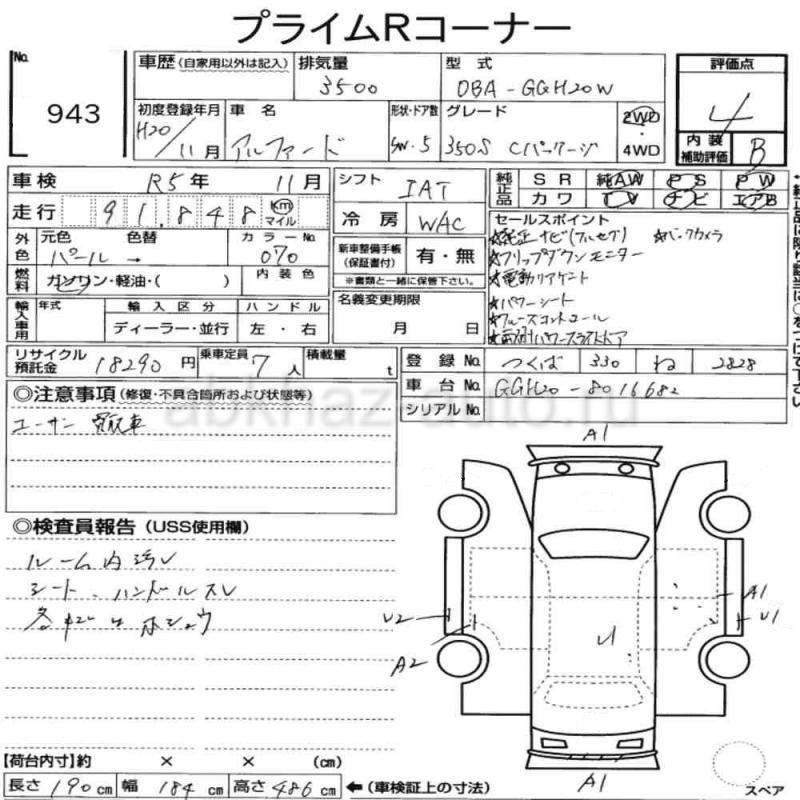 プライムRコーナー
No. 943
車歴 (自家用以外は記入) 排気量 3500 型式 DBA-GGH20W 評価点 4
初度登録年月 H20/11月 車名 アルファード 形状・ドア数 SW・5 グレード 350S Cパッケージ 2WD・4WD 内装補助評価 B
車検 R5年 11月 シフト IAT 純正品 SR 純AW PS PW
走行 91,848 km マイル 冷房 WAC カワ TV ナビ エアB
外色 元色 パール 色替 → カラーNo. 070 新車整備手帳(保証書付) 有・無 ※書類と一緒に保管下さい。
セールスポイント
☆純正ナビ(フルセグ) ☆バックカメラ
☆フリップダウンモニター
☆電動リアゲート
☆パワーシート
☆クルーズコントロール
☆両側パワースライドドア
燃料 ガソリン・軽油・( ) 内装色 名義変更期限 月 日
輸入車用 年式 輸入区分 ディーラー・並行 ハンドル 左・右
リサイクル預託金 18290円 乗車定員 7人 積載量 t 登録No. つくば 330 ね 2828
車台No. GGH20-8016682
シリアルNo.
abkhaz-auto.ru
◎注意事項 (修復・不具合箇所および状態等)
ユーザー買取車
◎検査員報告 (USS使用欄)
ルーム内汚レ
シート、ハンドルスレ
各キズ凹ホショウ
A1
A1
U1
U2
A2
U
A1
スペア
【荷台内寸】約 × × (cm)
長さ 190cm 幅 184cm 高さ 486cm ←(車検証上の寸法)